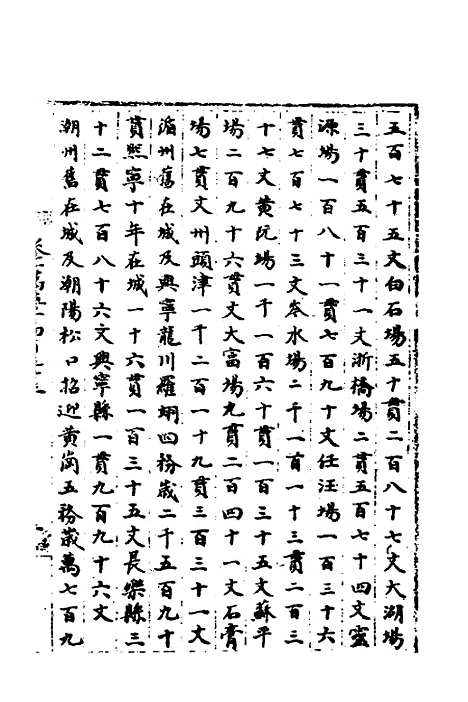 五百七十五文白石場五十貫二百八十七文大湖場
三十貫五百三十一文浙橋場二貫五百七十四文靈
源場一百八十一貫七百九十文任汪場一百三十六
貫七百七十三文岑水場二千一百一十三貫二百三
十七文黄阬場一千一百六十貫一百三十五文蘇平
場二百九十六貫文大富場九貫二百四十一文石膏
場七貫文州頭津一千二百一十九貫三百三十一文
循州舊在城及興寧龍川羅翊四務歲二千五百九十
貫熙寧十年在城一十六貫一百三十五文長樂縣三
十二貫七百八十六文興寧縣一貫九百九十六文
潮州舊在城及潮陽松口招迎黄崗五務歲萬七百九